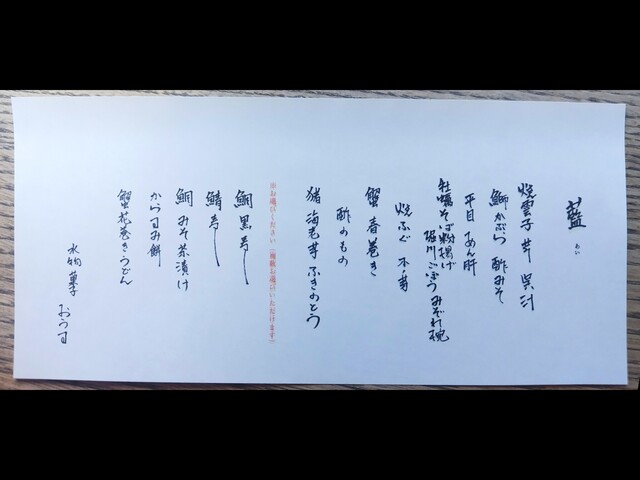 藍
あい
焼雲子 芹 呉汁
鰤かぶら 酢みそ
平目 あん肝
牡蠣そば粉揚げ
堀川ごぼう みぞれ椀
焼ふぐ 木ノ芽
蟹春巻き
酢のもの
猪 海老芋 ふきのとう
※お選びください(複数お選びいただけます)
鯛黒寿し
鯖寿し
鯛みそ茶漬け
からすみ餅
蟹花巻きうどん
水物 菓子
おうす